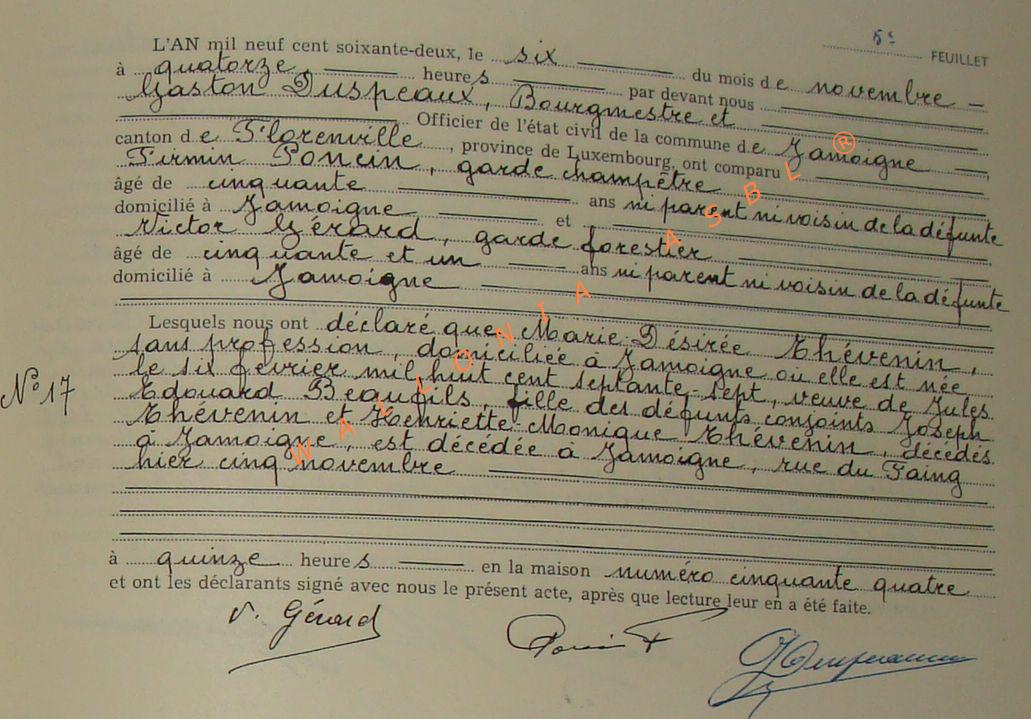 5e FEUILLET
L'AN mil neuf cent soixante-deux, le six du mois de novembre
à quatorze heures par devant nous
Gaston Duspeaux, Bourgmestre et
Officier de l'état civil de la commune de Jamoigne
canton de Florenville, province de Luxembourg, ont comparu
Firmin Poncin, garde champêtre
âgé de cinquante ans ni parent ni voisin de la défunte
domicilié à Jamoigne et
Victor Gérard, garde forestier
âgé de cinquante et un ans ni parent ni voisin de la défunte
domicilié à Jamoigne
Lesquels nous ont déclaré que Marie-Désirée Thévenin,
sans profession, domiciliée à Jamoigne où elle est née
le six février mil huit cent septante-sept, veuve de Jules
N° 17
Edouard Beaufils, fille des défunts conjoints Joseph
Thévenin et Henriette Monique Thévenin, décédés
à Jamoigne, est décédée à Jamoigne, rue du Faing
hier cinq novembre
à quinze heures en la maison numéro cinquante quatre
et ont les déclarants signé avec nous le présent acte, après que lecture leur en a été faite.
V. Gérard
Poncin F
WALLONIA ASBL ®